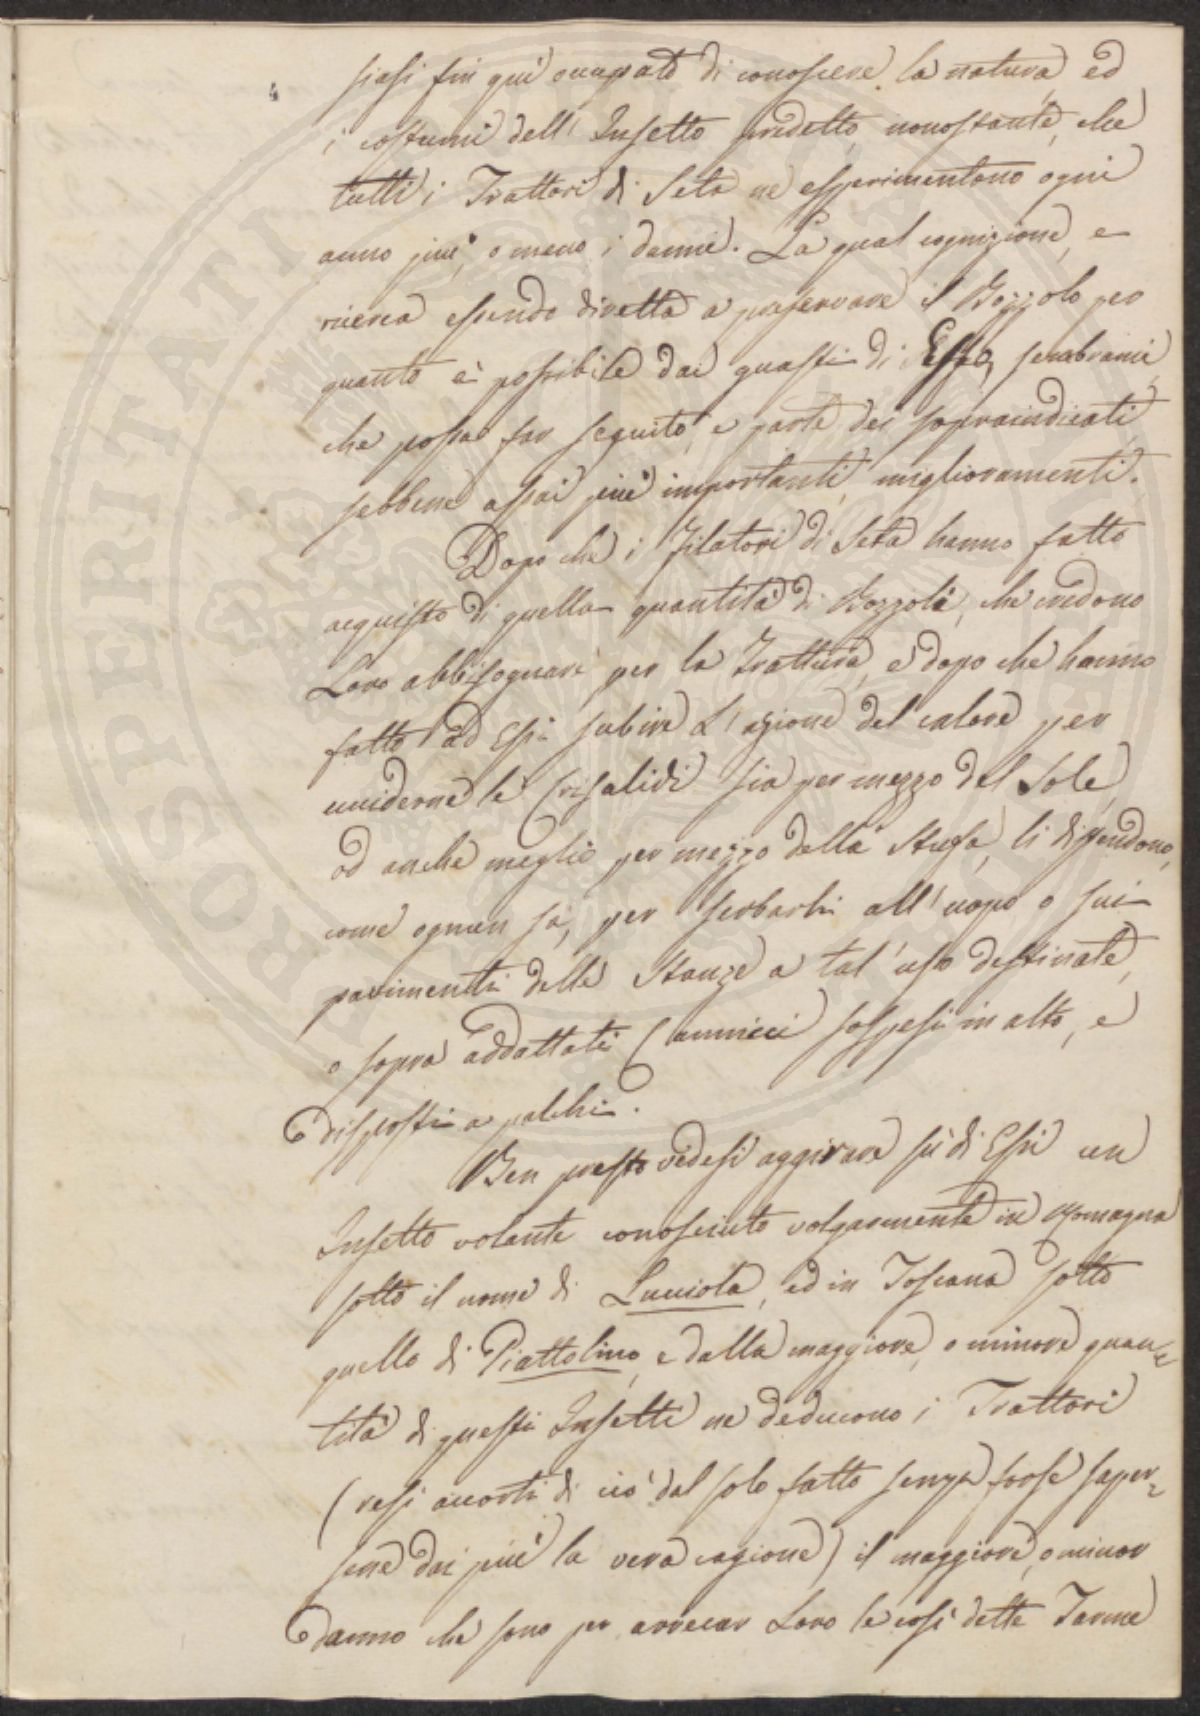 siasi fin quì occupato di conoscere la natura, ed
i costumi dell'Insetto predetto, nonostante, che
tutti i Trattori di Seta ne esperimentono ogni
anno più, o meno i danni. La qual cognizione, e
ricerca essendo diretta a preservare il Bozzolo per
quanto è possibile dai guasti di Esso, sembrami
che possa far seguito, e parte dei sopraindicati
sebbene assai più importanti miglioramenti.
Dopo che i Filatori di Seta hanno fatto
acquisto di quella quantità di Bozzoli, che credono
Loro abbisognare per la Trattura, e dopo che hanno
fatto ad Essi subire l'azione del calore per
ucciderne le Crisalidi sia per mezzo del Sole,
od anche meglio per mezzo della Stufa, li distendono,
come ognun sà, per serbarli all'uopo o sui
pavimenti delle Stanze a tal'uso destinate,
o sopra addattati Cannicci sospesi in alto, e
disposti a palchi.
Ben presto vedesi aggirare sù di Essi un
Insetto volante conosciuto volgarmente in Romagna
sotto il nome di Lucciola, ed in Toscana sotto
quello di Piattolino, e dalla maggiore, o minore quan=
tità di questi Insetti ne deducono i Trattori
(resi accorti di ciò dal solo fatto senza forse saper=
sene dai più la vera cagione) il maggiore, o minor
danno che sono per arrecar Loro le così dette Tarme
PROSPERITATI